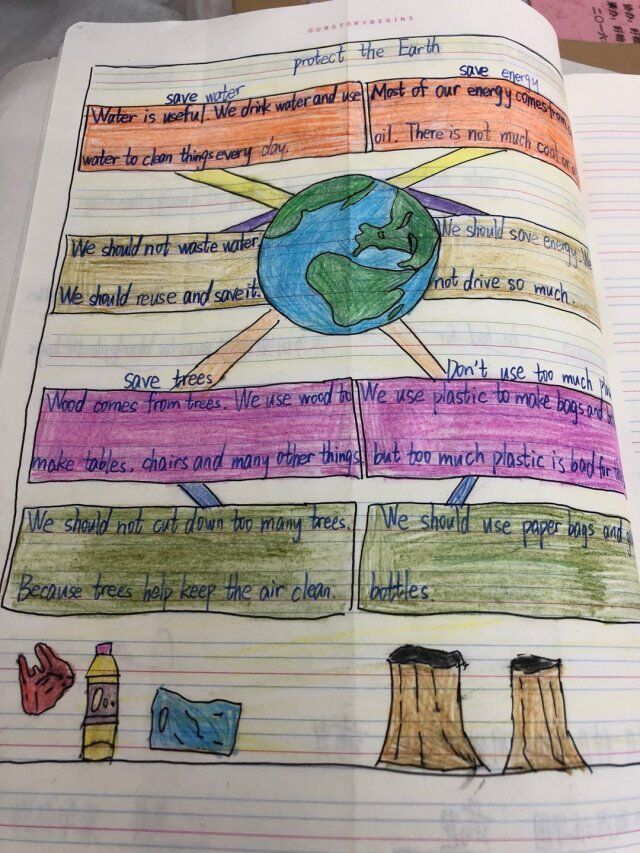 OURSTORYBEGINS
protect the Earth
save water
Water is useful. We drink water and use
water to clean things every day.
save energy
Most of our energy comes from
oil. There is not much coal or
We should not waste water.
We should reuse and save it.
We should save energy. We
not drive so much.
save trees
Wood comes from trees. We use wood to
make tables, chairs and many other things
Don't use too much
We use plastic to make bags and
but too much plastic is bad for
We should not cut down too many trees.
Because trees help keep the air clean.
We should use paper bags and
bottles.